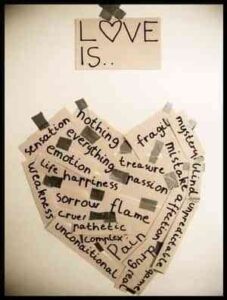 LOVE
IS..
nothing
sensation
everything
fragile
mystery
emotion
treasure
mistake
blind
life happiness
passion
weakness
affection
unpredictable
sorrow flame
cruel
pathetic
complex
pain
unconditional
drug
real
game